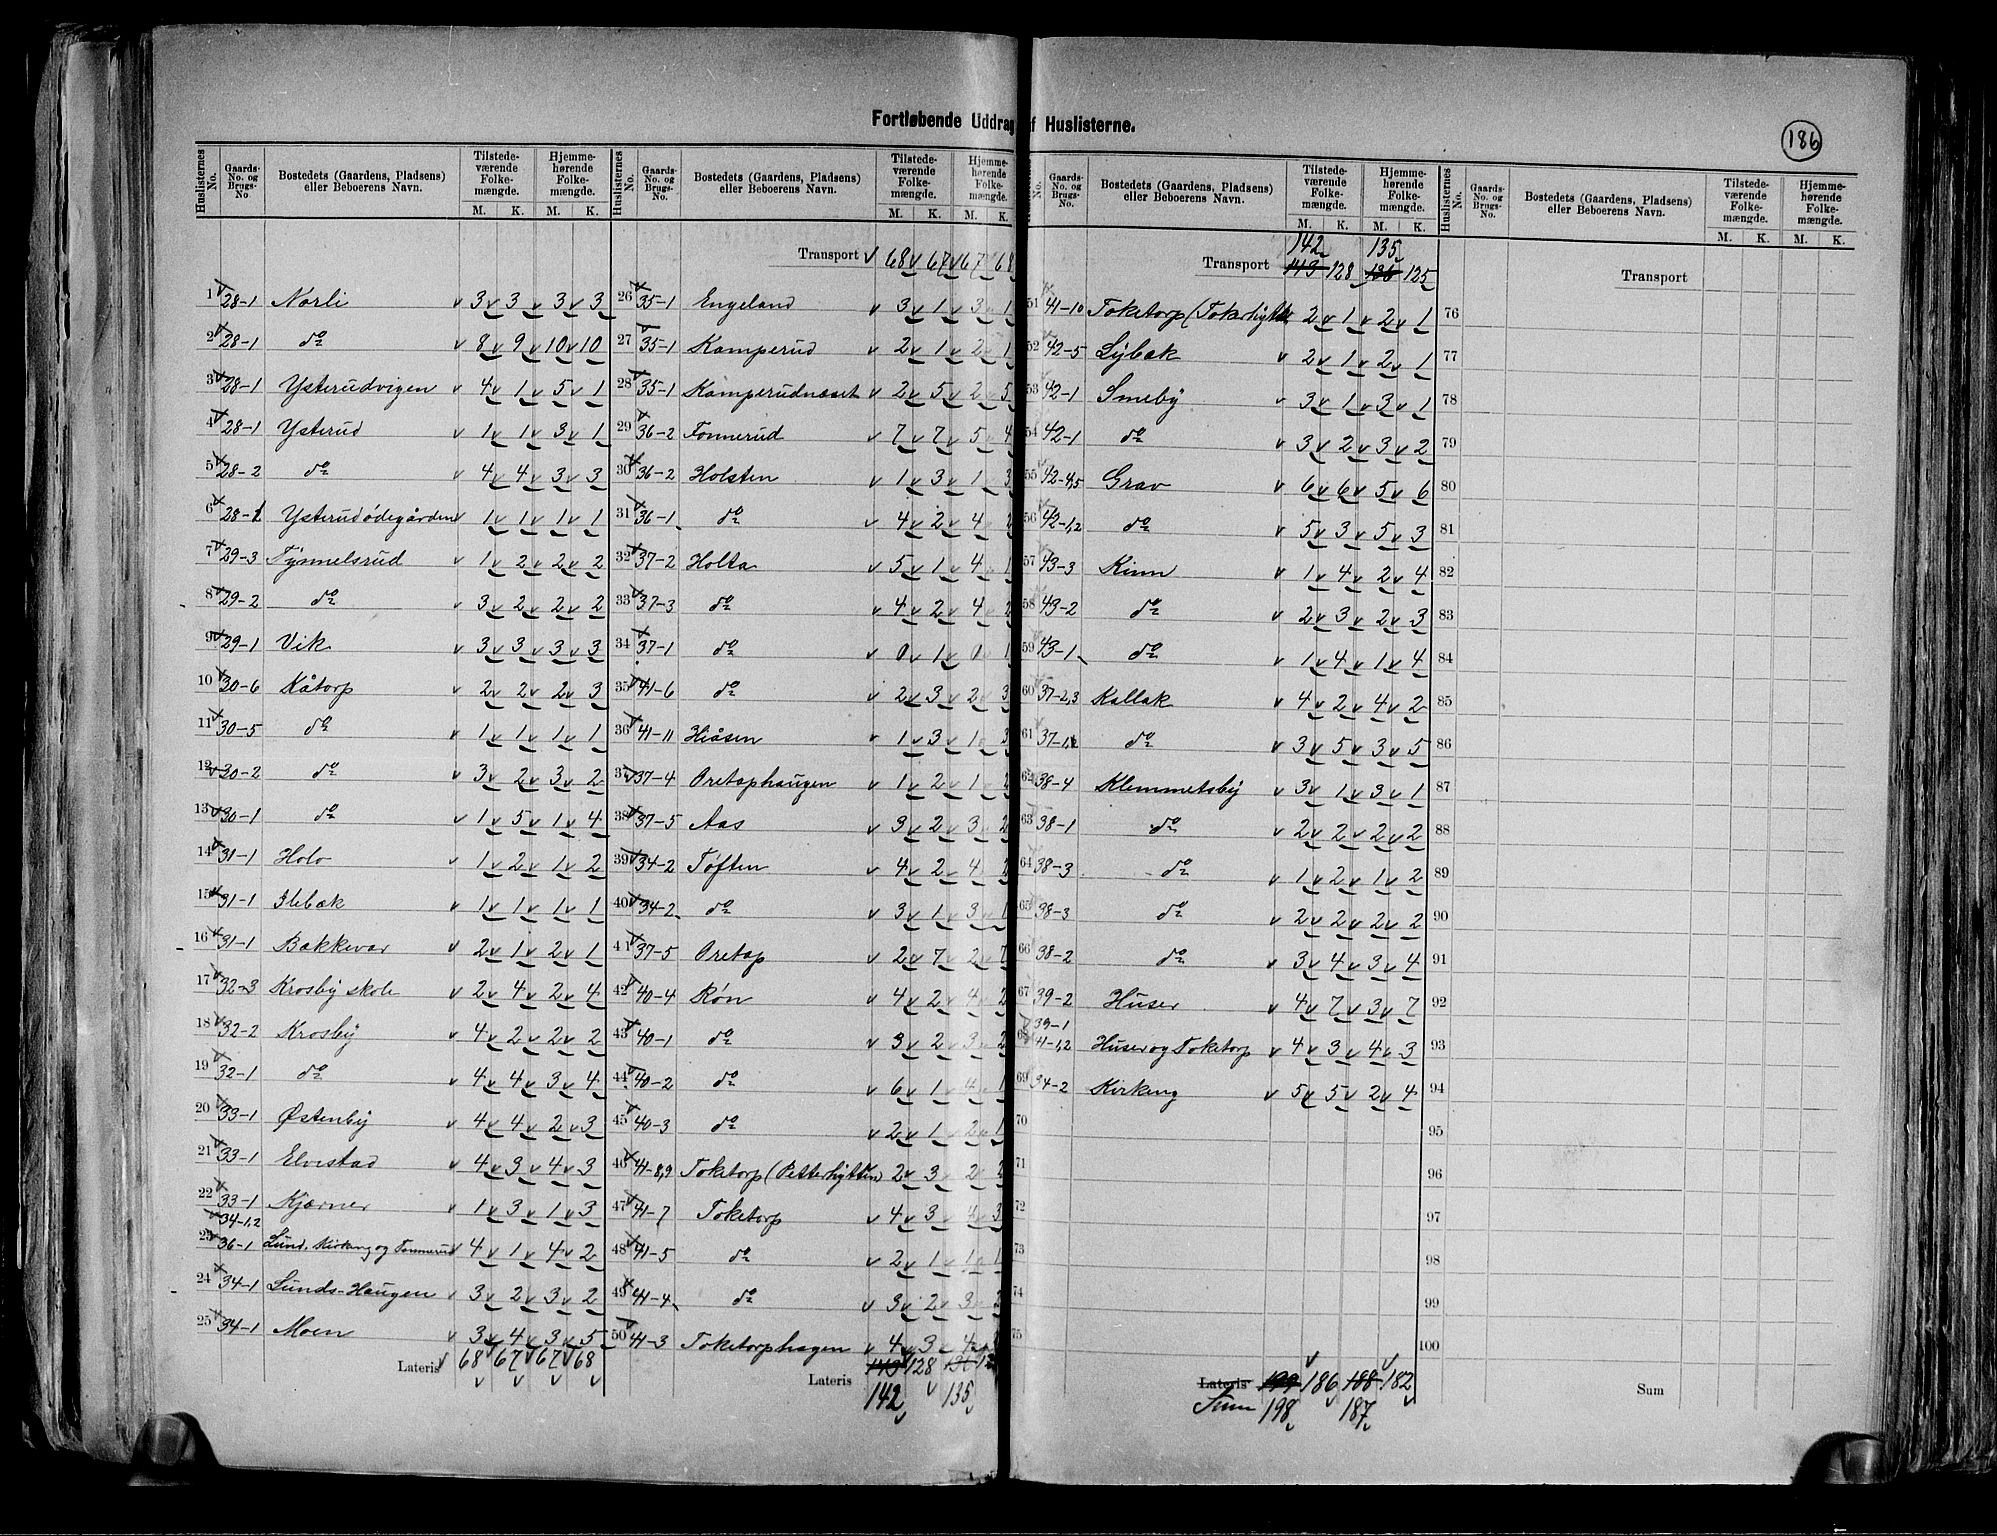 Fortløbende Uddrag af Huslisterne.
186
Huslisternes No. | Gaards-No. og Brugs-No. | Bostedets (Gaardens, Pladsens) eller Beboerens Navn. | Tilstedeværende Folkemængde. M. K. | Hjemmehørende Folkemængde. M. K.
1 28-1 Norli 3 3 3 3
2 28-1 do 8 9 10 10
3 28-1 Ysterudvigen 4 1 5 1
4 28-1 Ysterud 1 1 3 1
5 28-2 do 4 4 3 3
6 28-1 Ysterudødegården 1 1 1 1
7 29-3 Tymmelsrud 1 2 2 2
8 29-2 do 3 2 2 2
9 29-1 Vik 3 3 3 3
10 30-6 Kåtorp 2 2 2 3
11 30-5 do 1 1 1 1
12 30-2 do 3 2 3 2
13 30-1 do 1 5 1 4
14 31-1 Holo 1 2 1 2
15 31-1 Ilebæk 1 1 1 1
16 31-1 Bækkevar 2 1 2 1
17 32-3 Krosby skole 2 4 2 4
18 32-2 Krosby 4 2 2 2
19 32-1 do 4 4 3 4
20 33-1 Østenby 4 4 2 3
21 33-1 Elvestad 4 3 4 3
22 33-1 Kjærner 1 3 1 3
23 34-1,2 36-1 Lund, Kirkeng og Tonnerud 4 1 4 2
24 34-1 Lunds-Haugen 3 2 3 2
25 34-1 Moen 3 4 3 5
Lateris 68 67 67 68
Huslisternes No. | Gaards-No. og Brugs-No. | Bostedets (Gaardens, Pladsens) eller Beboerens Navn. | Tilstedeværende Folkemængde. M. K. | Hjemmehørende Folkemængde. M. K.
Transport 68 67 67 68
26 35-1 Engeland 3 1 3 1
27 35-1 Kamperud 2 1 2 1
28 35-1 Kamperudnæset 2 5 2 5
29 36-2 Tonnerud 7 7 5 4
30 36-2 Holsten 1 3 1 3
31 36-1 do 4 2 4 2
32 37-2 Holta 5 1 4 1
33 37-3 do 4 2 4 2
34 37-1 do 0 1 0 1
35 41-6 do 2 3 2 3
36 41-11 Hiåsen 1 3 1 3
37 37-4 Oretophaugen 1 2 1 2
38 37-5 Aas 3 2 3 2
39 34-2 Toften 4 2 4 2
40 34-2 do 3 1 3 1
41 37-5 Oretop 2 7 2 7
42 40-4 Røn 4 2 4 2
43 40-1 do 3 2 3 2
44 40-2 do 6 1 4 1
45 40-3 do 2 1 2 1
46 41-8,9 Toketorp (Petterhytten) 2 3 2 2
47 41-7 Toketorp 4 3 4 3
48 41-5 do 2 1 1 1
49 41-4 do 3 2 3 2
50 41-3 Toketorphagen 4 3 4 3
Lateris 143 128 136
142 135
No. | Gaards-No. og Brugs-No. | Bostedets (Gaardens, Pladsens) eller Beboerens Navn. | Tilstedeværende Folkemængde. M. K. | Hjemmehørende Folkemængde. M. K.
142 135
Transport 143 128 136 125
51 41-10 Toketorp (Tokerhytten 2 1 2 1
52 42-5 Lybæk 2 1 2 1
53 42-1 Smeby 3 1 3 1
54 42-1 do 3 2 3 2
55 42-4,5 Grav 6 6 5 6
56 42-1,2 do 5 3 5 3
57 43-3 Kinn 1 4 2 4
58 43-2 do 2 3 2 3
59 43-1 do 1 4 1 4
60 37-2,3 Kallak 4 2 4 2
61 37-1,2 do 3 5 3 5
62 38-4 Klemmetsby 3 1 3 1
63 38-1 do 2 2 2 2
64 38-3 do 1 2 1 2
65 38-3 do 2 2 2 2
66 38-2 do 3 4 3 4
67 39-2 Huser 4 7 3 7
68 39-1 41-1,2 Huser og Toketorp 4 3 4 3
69 34-2 Kirkeng 5 5 2 4
70
71
72
73
74
75
Lateris 199 186 188 182
Sum 198 187
Huslisternes No. | Gaards-No. og Brugs-No. | Bostedets (Gaardens, Pladsens) eller Beboerens Navn. | Tilstedeværende Folkemængde. M. K. | Hjemmehørende Folkemængde. M. K.
Transport
76
77
78
79
80
81
82
83
84
85
86
87
88
89
90
91
92
93
94
95
96
97
98
99
100
Sum